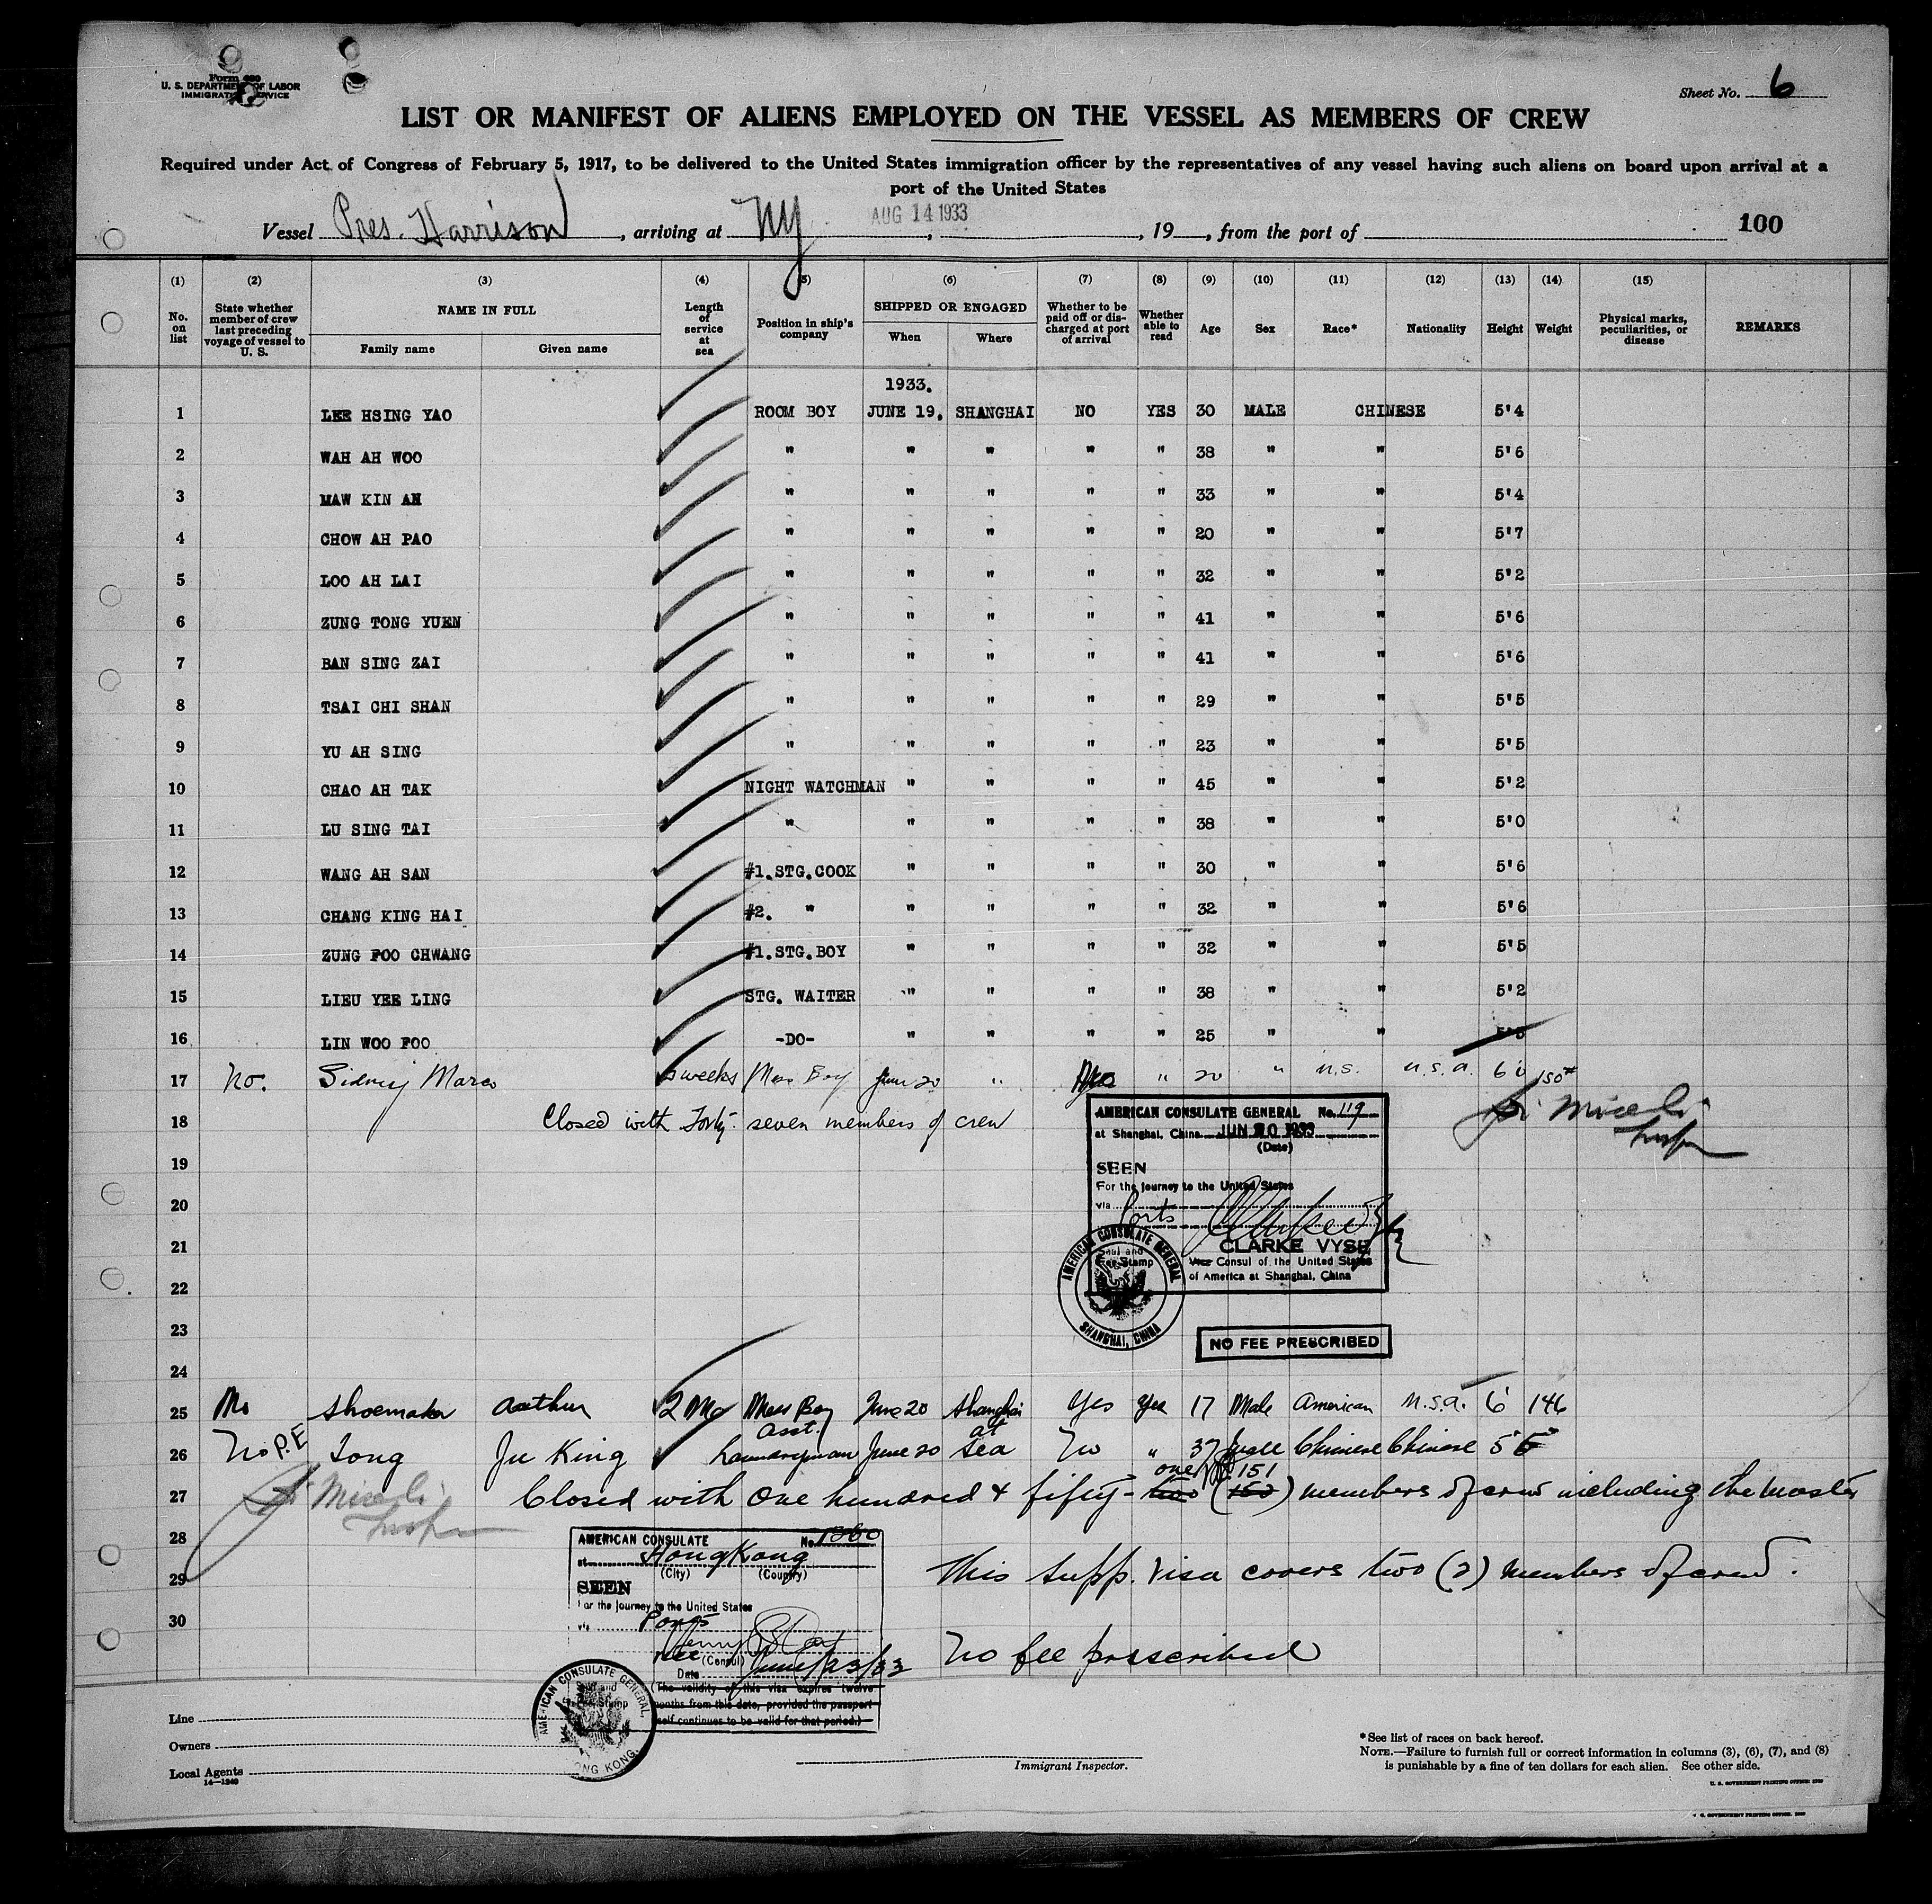 Form 680
U. S. DEPARTMENT OF LABOR
IMMIGRATION SERVICE
Sheet No. 6
LIST OR MANIFEST OF ALIENS EMPLOYED ON THE VESSEL AS MEMBERS OF CREW
Required under Act of Congress of February 5, 1917, to be delivered to the United States immigration officer by the representatives of any vessel having such aliens on board upon arrival at a
port of the United States
Vessel Pres. Harrison, arriving at NY, AUG 14 1933, 19, from the port of 100
(1) (2) (3) (4) (5) (6) (7) (8) (9) (10) (11) (12) (13) (14) (15)
No. on list State whether member of crew last preceding voyage of vessel to U. S. NAME IN FULL Family name Given name Length of service at sea Position in ship's company SHIPPED OR ENGAGED When Where Whether to be paid off or discharged at port of arrival Whether able to read Age Sex Race* Nationality Height Weight Physical marks, peculiarities, or disease REMARKS
1933.
1 LEE HSING YAO ROOM BOY JUNE 19. SHANGHAI NO YES 30 MALE CHINESE 5'4
2 WAH AH WOO " " " " " 38 " " 5'6
3 MAW KIN AH " " " " " 33 " " 5'4
4 CHOW AH PAO " " " " " 20 " " 5'7
5 LOO AH LAI " " " " " 32 " " 5'2
6 ZUNG TONG YUEN " " " " " 41 " " 5'6
7 BAN SING ZAI " " " " " 41 " " 5'6
8 TSAI CHI SHAN " " " " " 29 " " 5'5
9 YU AH SING " " " " " 23 " " 5'5
10 CHAO AH TAK NIGHT WATCHMAN " " " " 45 " " 5'2
11 LU SING TAI " " " " " 38 " " 5'0
12 WANG AH SAN #1.STG.COOK " " " " 30 " " 5'6
13 CHANG KING HAI #2. " " " " " 32 " " 5'6
14 ZUNG FOO CHWANG #1.STG.BOY " " " " 32 " " 5'5
15 LIEU YEE LING STG. WAITER " " " " 38 " " 5'2
16 LIN WOO FOO -DO- " " " " 25 " "
17 No. Sidney Marco weeks Mess Boy June 20 " " 20 " U.S. U.S.A. 6'0 150#
18 Closed with Forty-seven members of crew
19
20
21
22
23
24
AMERICAN CONSULATE GENERAL No. 119
at Shanghai, China JUN 20 1933
(Date)
SEEN
For the journey to the United States
via Ports
CLARKE VYSE
Vice Consul of the United States
of America at Shanghai, China
Seal and
Fee Stamp
AMERICAN CONSULATE GENERAL
SHANGHAI, CHINA
NO FEE PRESCRIBED
25 No Shoemaker Arthur 2 Mo Mess Boy June 20 Shanghai Yes Yes 17 Male American U.S.A. 6' 146
26 No P.E Tong Ju King Asst. Laundryman June 20 at Sea No " 37 Male Chinese Chinese 5'6"
27 Closed with One hundred & fifty-two one (152) 151 members of crew including the master
28
29 This supp. visa covers two (2) members of crew.
30
No fee prescribed
AMERICAN CONSULATE No. 1360
at HongKong
(City) (Country)
SEEN
For the journey to the United States
via Ports
Vice (Consul)
Date June/23/33
(The validity of this visa expires twelve
months from this date, provided the passport
self continues to be valid for that period.)
AMERICAN CONSULATE GENERAL,
HONG KONG.
Line
Owners
Local Agents
14—1240
Immigrant Inspector.
*See list of races on back hereof.
NOTE.—Failure to furnish full or correct information in columns (3), (6), (7), and (8)
is punishable by a fine of ten dollars for each alien. See other side.
U. S. GOVERNMENT PRINTING OFFICE